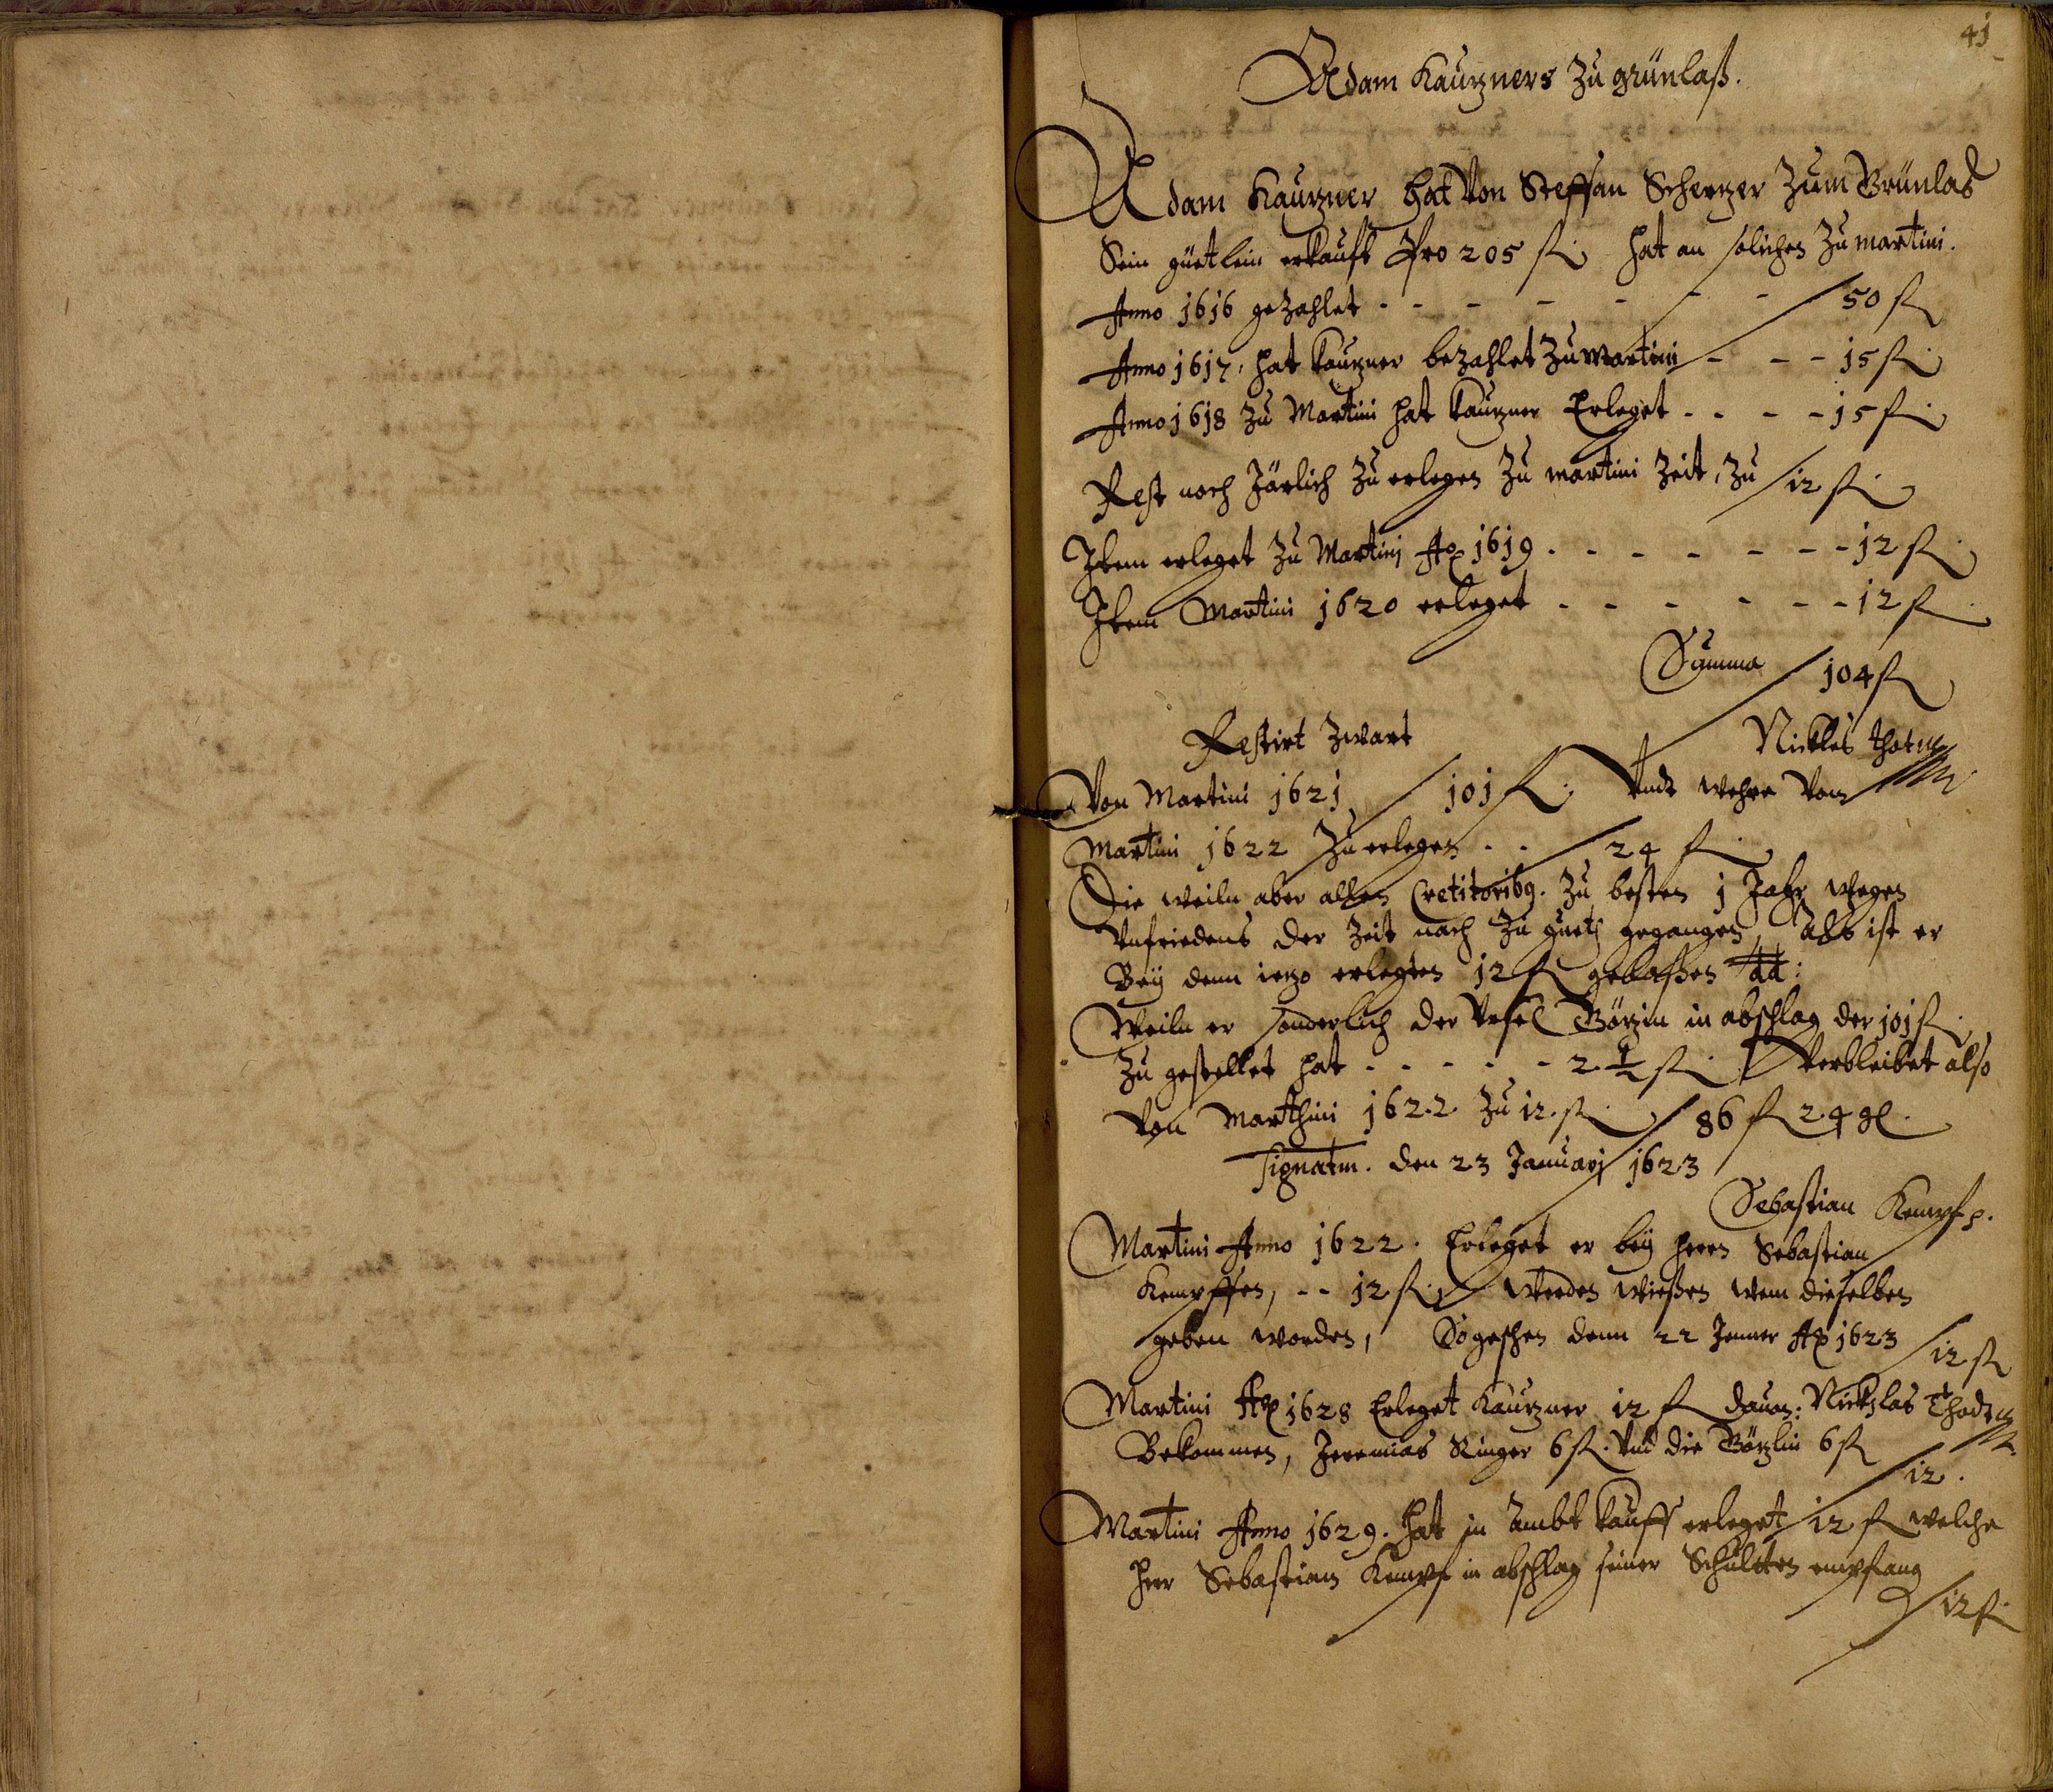 41
Adam Kautzners zu grünlaß.
Adam Kautzner hat von Steffan Schertzer zum Grünlas
Sein güetlein erkauft Pro 205 fl. hat an solichen zu martini.
Anno 1616 gezahlet - - - - - - - 50 fl
Anno 1617, hat kautzner bezahlet zu Martini - - - 15 fl.
Anno 1618 zu Martini hat kautzner Erleget - - - - 15 fl.
Rest noch Järlich zu erlegen zu martini Zeit, zu 12 fl.
Item erleget zu Martini Ao 1619 - - - - - - - 12 fl.
Item Martini 1620 erleget - - - - - - 12 fl.
Summa 104 fl
Restirt
Nickles
Von Martini 1621 101 fl. Vndt wehre Vom
Martini 1622 zu erlegen - - 24 fl.
Die weiln aber allen Cretitorib9. zu besten 1 Jahr wegen
Vnfriedens der Zeit nach zu gueth gegangen, Als ist er
Bey denn ietzo erlegten 12 fl gelaßen
Weiln er sonderlich der Börzin in abschlag der 101 fl.
zu gestellet hat - - - - - 2 1/2 fl. Verbleibet also
Von Marthini 1622 zu 12. fl. 86 fl 24 gl.
Signatm. den 23 Januarj 1623
Sebastian Kempf
Martini Anno 1622. Erleget er bey herrn Sebastian
Kempffen, - - 12 fl. werden wießen wem dieselben
geben worden, So geschen denn 22 Jenner Ao 1623
12 fl
Martini Ao 1628 Erleget Kautzner 12 fl dauon: Nicklas
Bekommen, Jeremias Ringer 6 fl. vnd die Börzlin 6 fl
12.
Martini Anno 1629. hat in Ambt kauff erleget 12 fl welche
herr Sebastian Kempf in abschlag seiner Schultten empfang
12 fl.